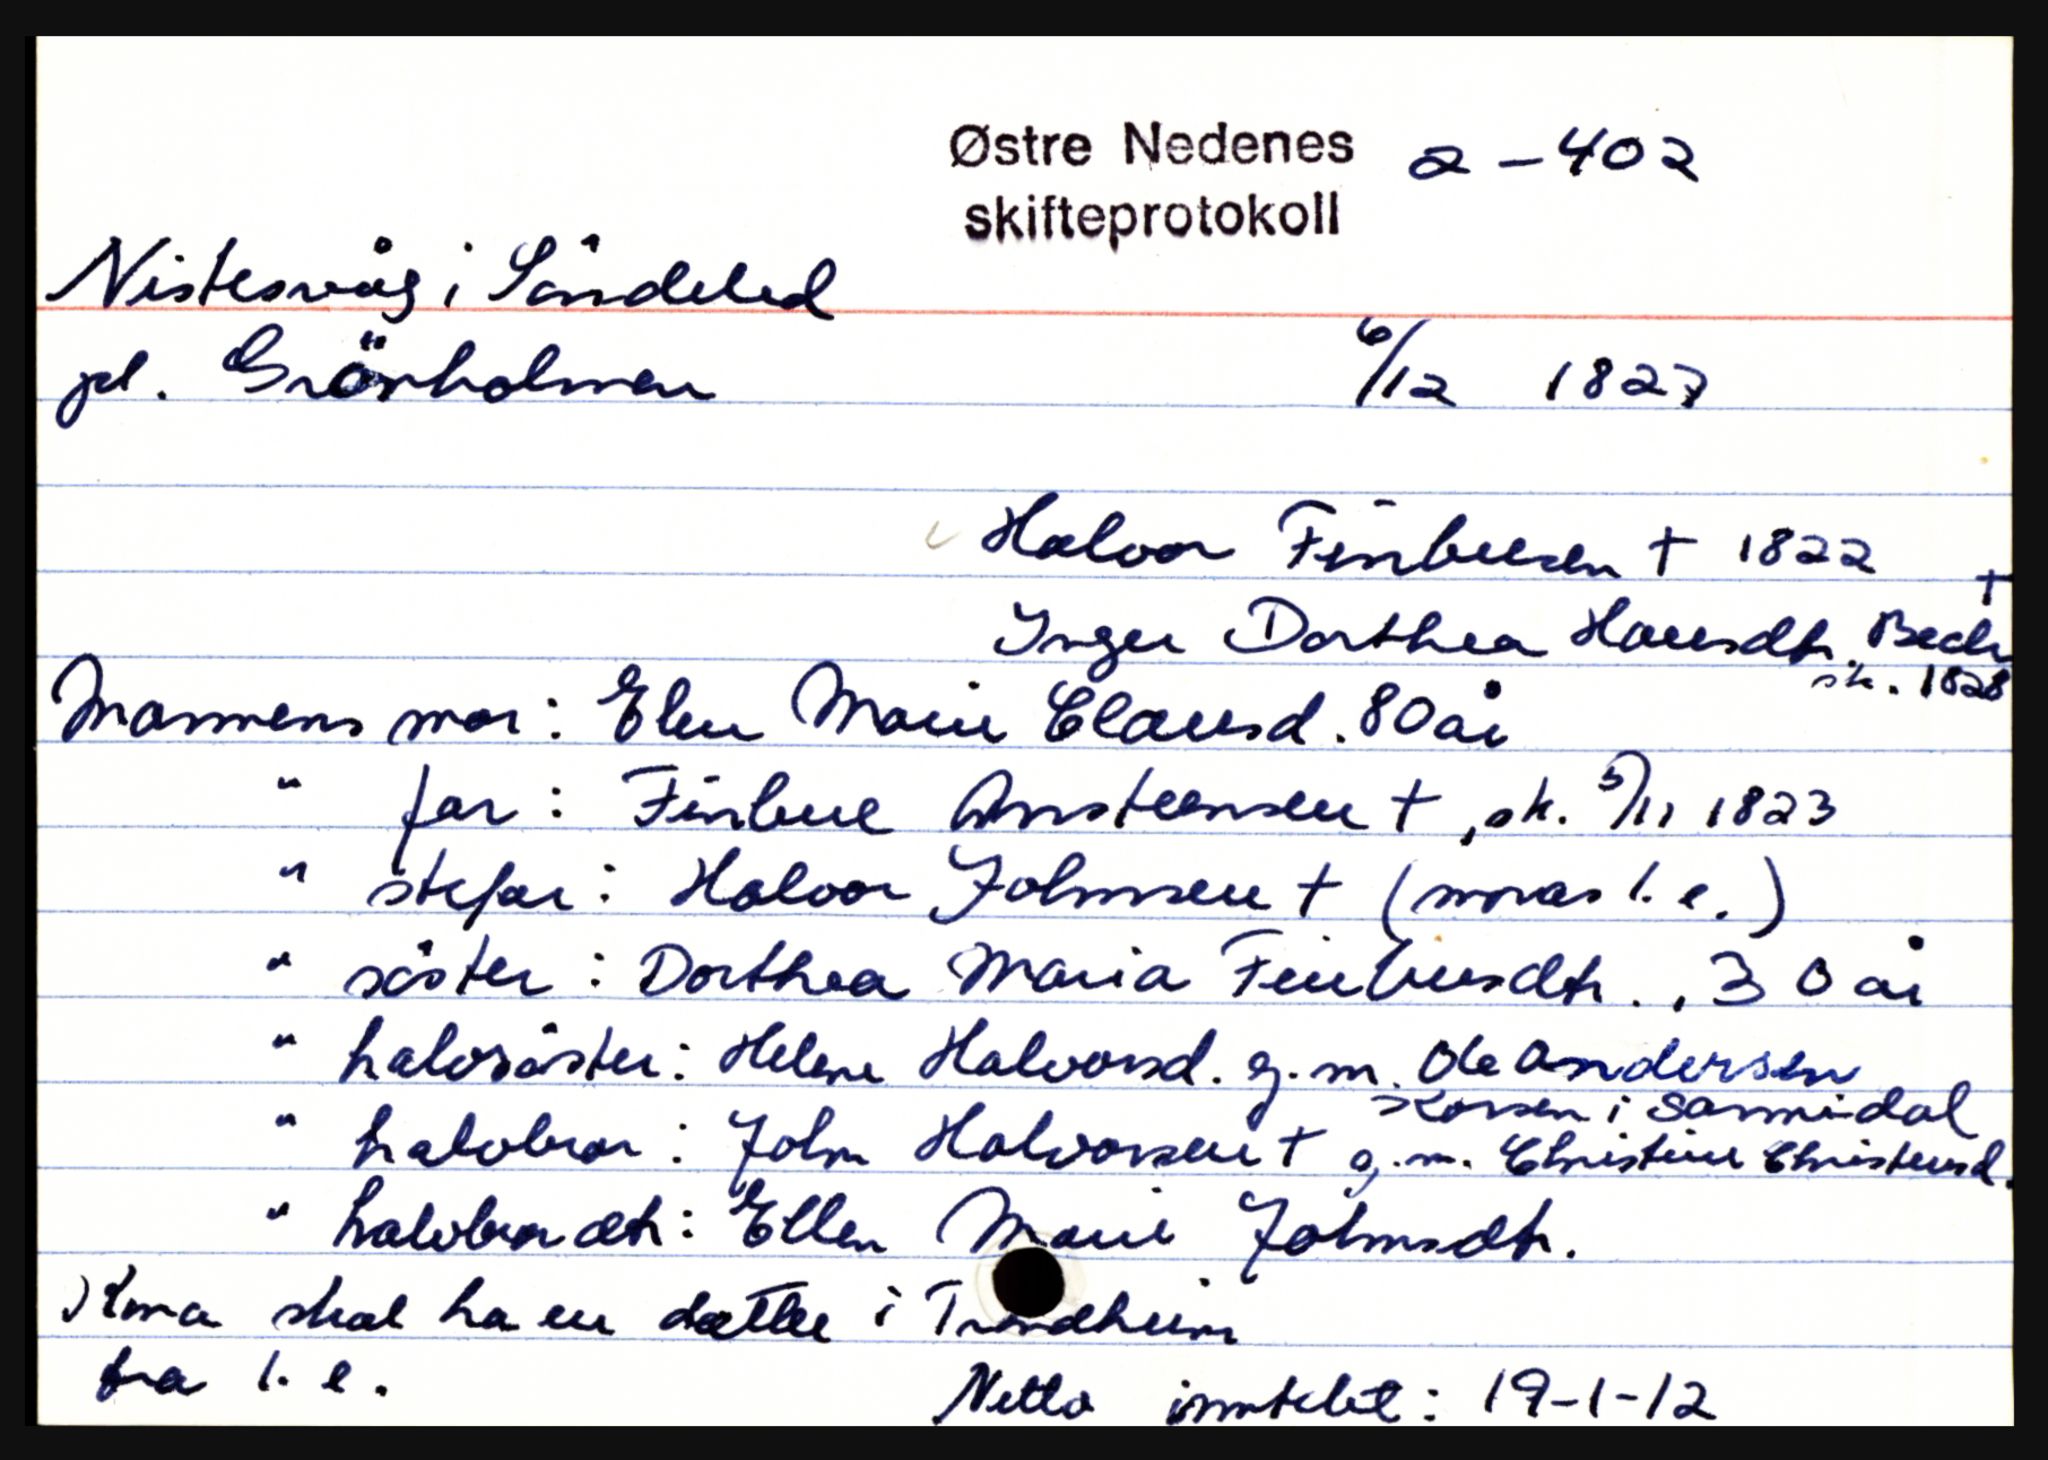 Østre Nedenes 2-402
skifteprotokoll
Nistesvåg i Söndeled
pl. Grönholmen 6/12 1827
Halvor Finbuesen † 1822
Inger Dorthea Hansdtr. Bech †
sk. 1828
Mannens mor: Elen Marie Clausd. 80 år
" far: Finbue Ansteensen †, sk. 5/11 1823
" stefar: Halvor Johnsen † (moras 1. e.)
" söster: Dorthea Maria Finbuesdtr., 30 år
" halvsöster: Helene Halvorsd. g.m. Ole Andersen
Korsen i Sannidal
" halvbror: John Halvorsen † g.m. Christine Christensd.
" halvbror dtr: Ellen Marie Johnsdtr.
Kona skal ha en datter i Trondheim
fra 1. e.
Netto inntekt: 19-1-12